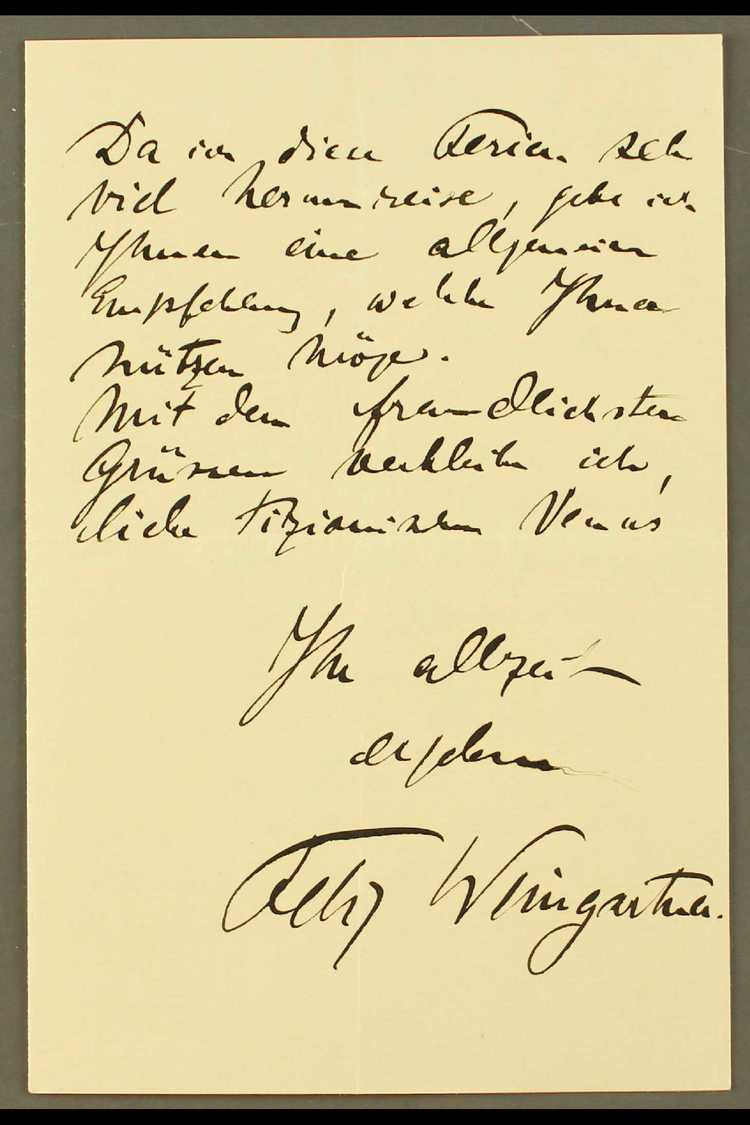 Da ich diese Ferien sehr
viel herumreise, gebe ich
Ihnen eine allgemeine
Empfehlung, welche Ihnen
nützen möge.
Mit den freundlichsten
Grüssen verbleibe ich,
liebe Tizianischen Venus
Ihr allzeit
ergebener
Felix Weingartner.